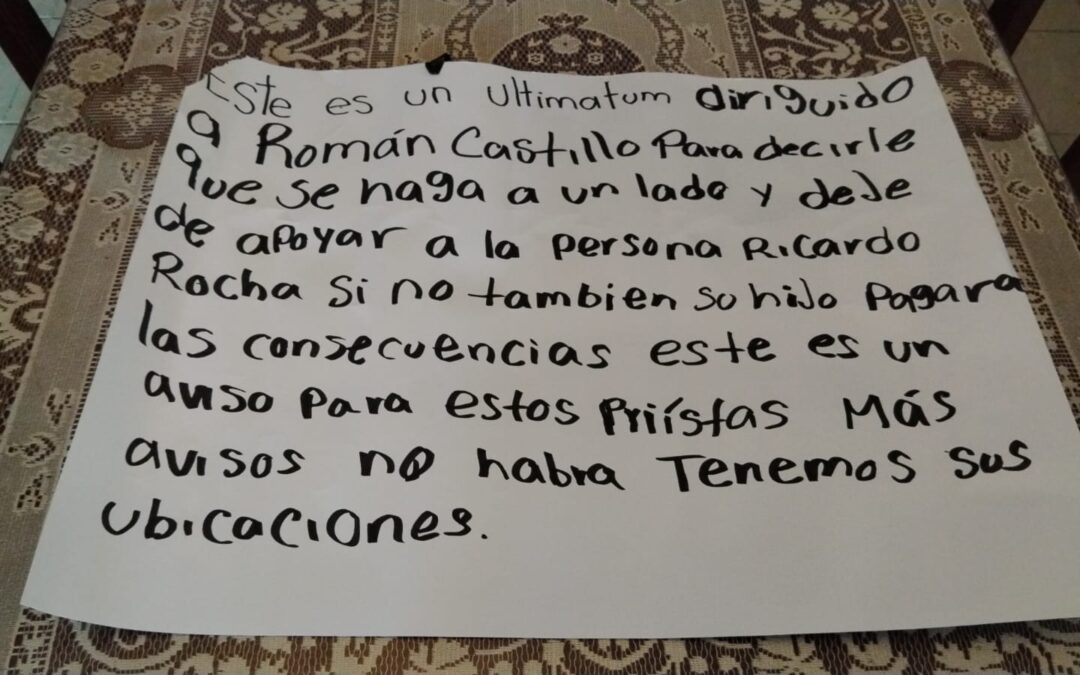 Este es un ultimatum diriguido
a Román Castillo Para decirle
que se haga a un lado y deje
de apoyar a la persona Ricardo
Rocha si no tambien su hijo Pagara
las consecuencias este es un
aviso para estos Priístas Más
avisos no habra Tenemos sus
ubicaciones.